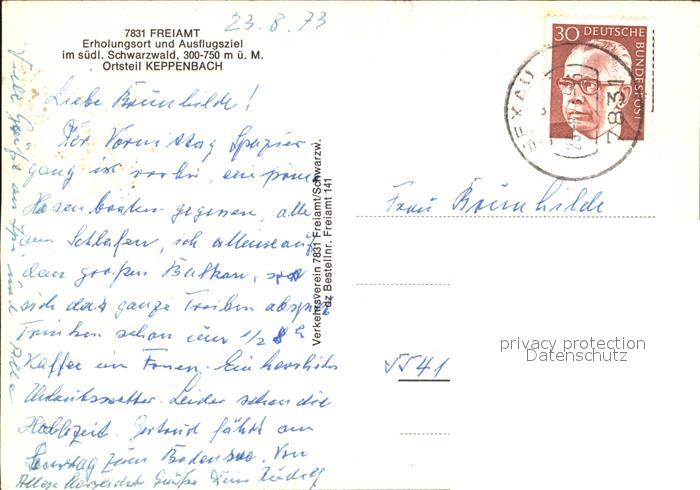 23.8.73
7831 FREIAMT
Erholungsort und Ausflugsziel
im südl. Schwarzwald, 300-750 m ü. M.
Ortsteil KEPPENBACH
Liebe Brunhilde!
Der Vormittag Spazier-
gang ist vorbei, ein prima
Hasenbraten gegessen, alle
am Schlafen, ich alleine auf
dem großen Balkon, wo
sich das ganze Treiben abspielt
Trinken schon um 1/2 8 h
Kaffee im Freien. Ein herrliches
Urlaubswetter. Leider schon die
Halbzeit. Gertrud fährt am
Sonntag zum Bodensee. Von
Allen herzliche Grüße Dein Rudolf
Viele Grüße an und Alle
Verkehrsverein 7831 Freiamt/Schwarzw.
dz Bestellnr. Freiamt 141
30 DEUTSCHE
BUNDESPOST
SEXAU
7831
Frau Brunhilde
privacy protection
Datenschutz
5541